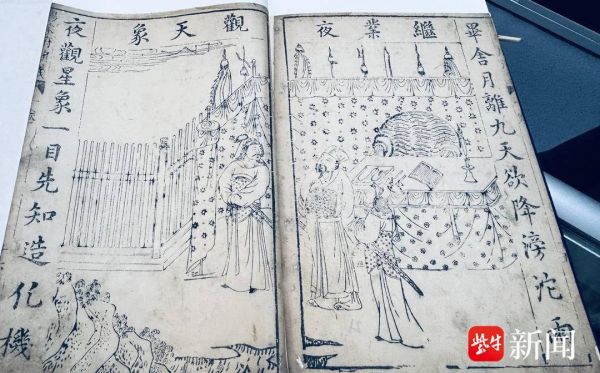 繼業夜
觀天象
畢舍月離九天欲降滂沱雨
夜觀星象一目先知造化機
紫牛新闻